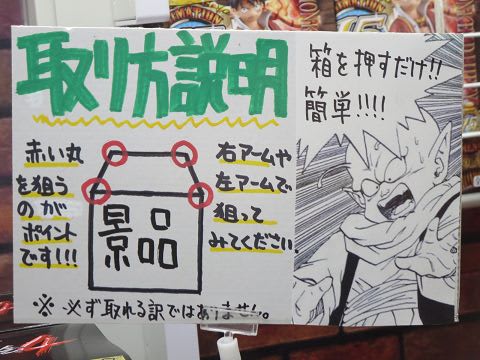 取り方説明
箱を押すだけ!!
簡単!!!!
赤い丸
を狙う
のが
ポイント
です!!!
景品
右アームや
左アームで
狙って
みてください。
※ 必ず取れる訳ではありません。